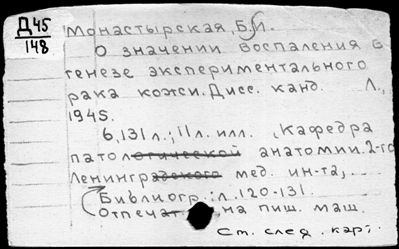 Д45
148
Монастырская, Б.И.
О значении воспаления в
генезе экспериментального
рака кожи. Дисс. канд. Л.,
1945.
6, 131 л.; 11 л. илл. (Кафедра
патологической анатомии. 2-го
Ленинградского мед. ин-та),
Библиогр.: л. 120-131.
Отпечат на пиш. маш.
См. след. карт.